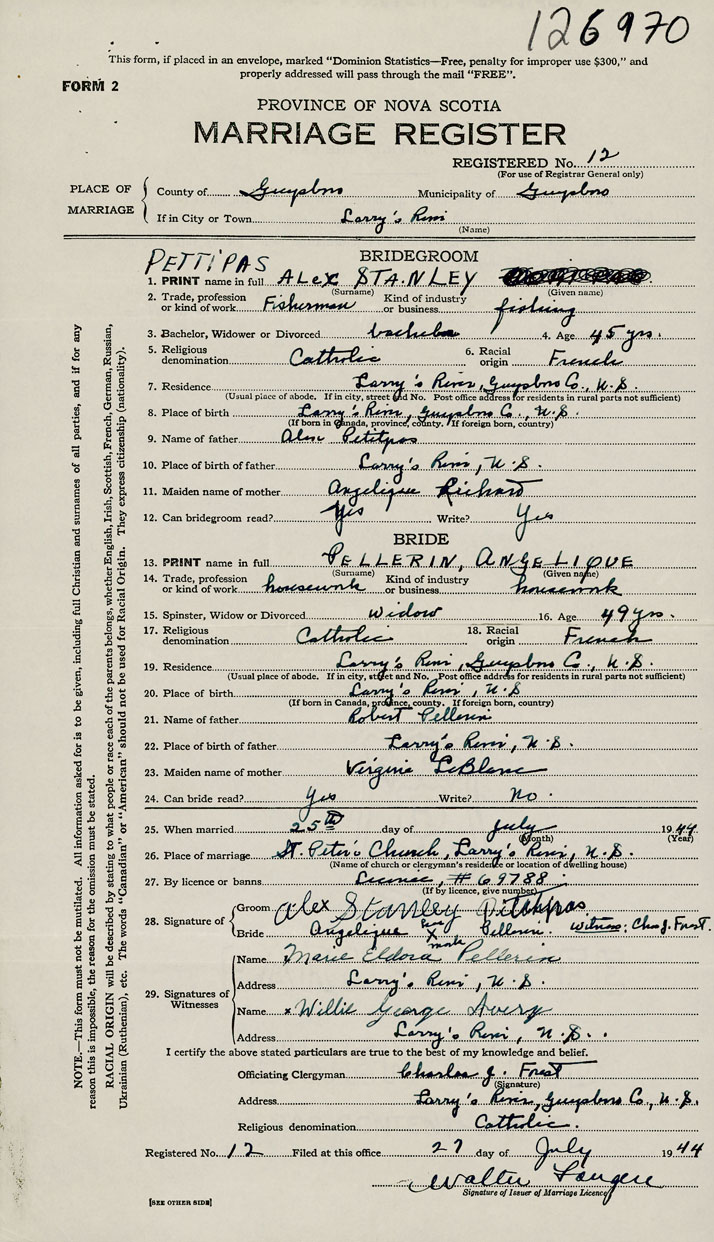 126970
This form, if placed in an envelope, marked "Dominion Statistics—Free, penalty for improper use $300," and
properly addressed will pass through the mail "FREE".
FORM 2
PROVINCE OF NOVA SCOTIA
MARRIAGE REGISTER
REGISTERED No. 12
(For use of Registrar General only)
PLACE OF MARRIAGE
County of Guysboro Municipality of Guysboro
If in City or Town Larry's River
(Name)
PETTIPAS BRIDEGROOM
1. PRINT name in full ALEX STANLEY
(Surname) (Given name)
2. Trade, profession or kind of work Fisherman Kind of industry or business fishing
3. Bachelor, Widower or Divorced bachelor 4. Age 45 yrs.
5. Religious denomination Catholic 6. Racial origin French
7. Residence Larry's River, Guysboro Co., N.S.
(Usual place of abode. If in city, street and No. Post office address for residents in rural parts not sufficient)
8. Place of birth Larry's River, Guysboro Co., N.S.
(If born in Canada, province, county. If foreign born, country)
9. Name of father Alex Petitpas
10. Place of birth of father Larry's River, N.S.
11. Maiden name of mother Angelique Richard
12. Can bridegroom read? Yes Write? Yes
BRIDE
13. PRINT name in full PELLERIN, ANGELIQUE
(Surname) (Given name)
14. Trade, profession or kind of work housework Kind of industry or business housework
15. Spinster, Widow or Divorced Widow 16. Age 49 yrs.
17. Religious denomination Catholic 18. Racial origin French
19. Residence Larry's River, Guysboro Co., N.S.
(Usual place of abode. If in city, street and No. Post office address for residents in rural parts not sufficient)
20. Place of birth Larry's River, N.S
(If born in Canada, province, county. If foreign born, country)
21. Name of father Robert Pellerin
22. Place of birth of father Larry's River, N.S.
23. Maiden name of mother Virginie LeBlanc
24. Can bride read? Yes Write? No.
25. When married 25th day of July 1944
(Month) (Year)
26. Place of marriage St. Peter's Church, Larry's River, N.S.
(Name of church or clergyman's residence or location of dwelling house)
27. By licence or banns License, #69788
(If by licence, give number)
28. Signature of
Groom Alex Stanley Petitpas
Bride Angelique her X mark Pellerin. Witness: Chas J. Forst.
29. Signatures of Witnesses
Name Marie Eldora Pellerin
Address Larry's River, N.S.
Name x Willie George Avery
Address Larry's River, N.S.
I certify the above stated particulars are true to the best of my knowledge and belief.
Officiating Clergyman Charles J. Forst
(Signature)
Address Larry's River, Guysboro Co., N.S.
Religious denomination Catholic.
Registered No. 12 Filed at this office 27 day of July 1944
Walter
Signature of Issuer of Marriage Licence
[SEE OTHER SIDE]
NOTE.—This form must not be mutilated. All information asked for is to be given, including full Christian and surnames of all parties, and if for any
reason this is impossible, the reason for the omission must be stated.
RACIAL ORIGIN will be described by stating to what people or race each of the parents belongs, whether English, Irish, Scottish, French, German, Russian,
Ukrainian (Ruthenian), etc. The words "Canadian" or "American" should not be used for Racial Origin. They express citizenship (nationality).